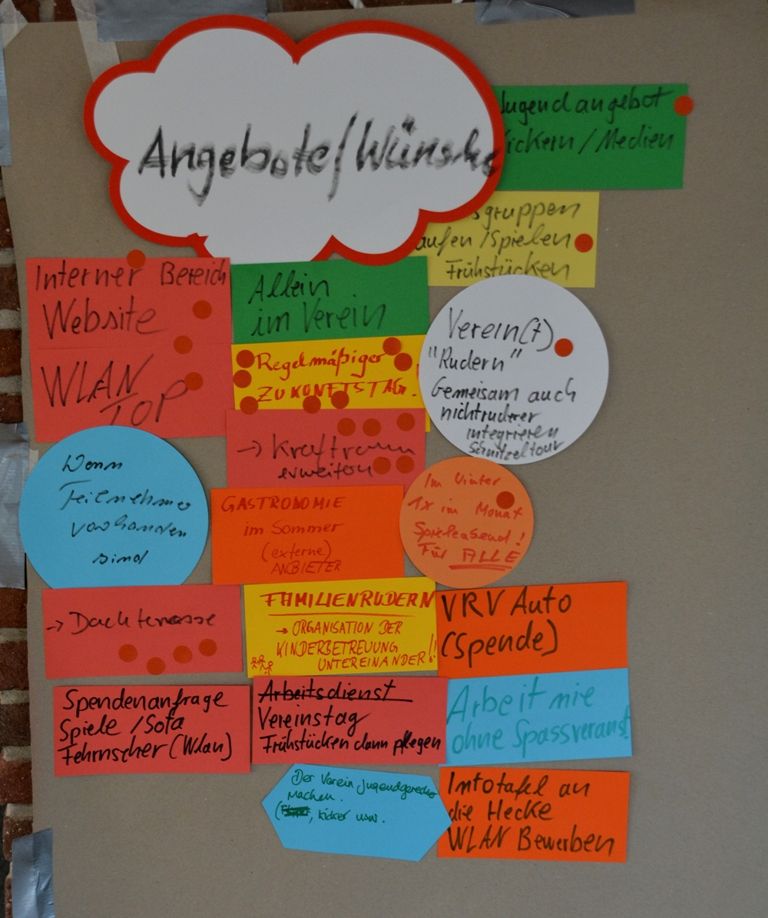 Angebote/Wünsche
Jugendangebot
Kickern/Medien
sgruppen
aufen/Spielen
Frühstücken
Interner Bereich
Website
WLAN
TOP
Allein
im Verein
Regelmäßiger
ZUKUNFTSTAG!
Verein(t)
"Rudern"
Gemeinsam auch
nichtruderer
integrieren
Schnitzeltour
→ Kraftraum
erweitern
Wenn
Teilnehmer
vorhanden
sind
GASTRONOMIE
im Sommer
(externe)
ANBIETER
Im Winter
1x im Monat
Spieleabend!
Für ALLE
→ Dachterrasse
FAMILIENRUDERN
→ ORGANISATION DER
KINDERBETREUUNG
UNTEREINANDER!!
VRV Auto
(Spende)
Spendenanfrage
Spiele/Sofa
Fehrnseher (Wlan)
Arbeitsdienst
Vereinstag
Frühstücken dann pflegen
Arbeit nie
ohne Spassveranst
Der Verein jugendgerecht
machen.
(, kicker usw.
Infotafel an
die Hecke
WLAN Bewerben